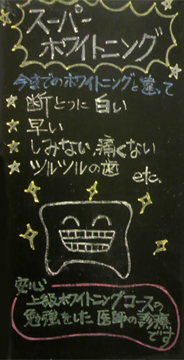 スーパー
ホワイトニング
今までのホワイトニングと違って
★ 断とつに白い
★ 早い
★ しみない、痛くない
★ ツルツルの歯 etc.
安心
上級ホワイトニングコースの
勉強をした医師の診療
です